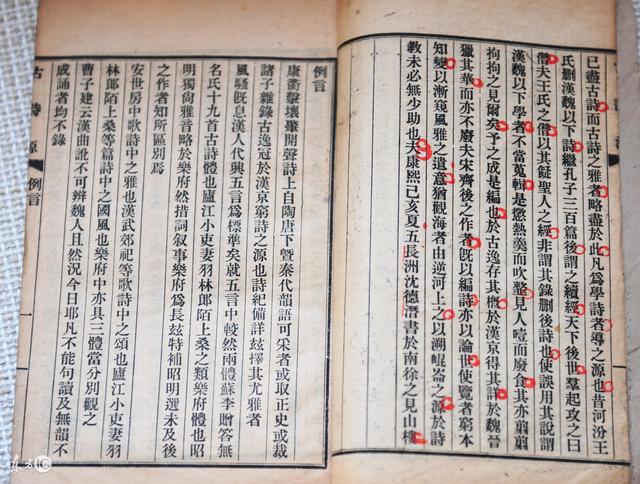 已盡古詩而古詩之雅者略盡於此凡為學詩者導之源也昔河汾王
氏刪漢魏以下詩繼孔子三百篇後謂之續經天下後世羣起攻之曰
僭夫王氏之僭以其儗聖人之經非謂其錄刪後詩也使誤用其說謂
漢魏以下學者不當蒐輯是懲熱羹而吹虀見人噎而廢食其亦翦翦
拘拘之見爾矣予之成是編也於古逸存其概於漢京得其詳於魏晉
獵其華而亦不廢夫宋齊後之作者既以編詩亦以論世使覽者窮本
知變以漸窺風雅之遺意猶觀海者由逆河上之以溯崐崙之源於詩
教未必無少助也夫康熙己亥夏五長洲沈德潛書於南徐之見山樓
例言
康衢擊壤肇開聲詩上自陶唐下暨秦代韻語可采者或取正史或裁
諸子雜錄古逸冠於漢京窮詩之源也詩紀備詳玆擇其尤雅者
風騷既息漢人代興五言爲標準矣就五言中較然兩體蘇李贈答無
名氏十九首古詩體也廬江小吏妻羽林郎陌上桑之類樂府體也昭
明獨尚雅音略於樂府然措詞敘事樂府爲長玆特補昭明選未及後
之作者知所區別焉
安世房中歌詩中之雅也漢武郊祀等歌詩中之頌也廬江小吏妻羽
林郎陌上桑等篇詩中之國風也樂府中亦具三體當分別觀之
曹子建云漢曲訛不可辨魏人且然況今日耶凡不能句讀及無韻不
成誦者均不錄
古詩源
例言
一